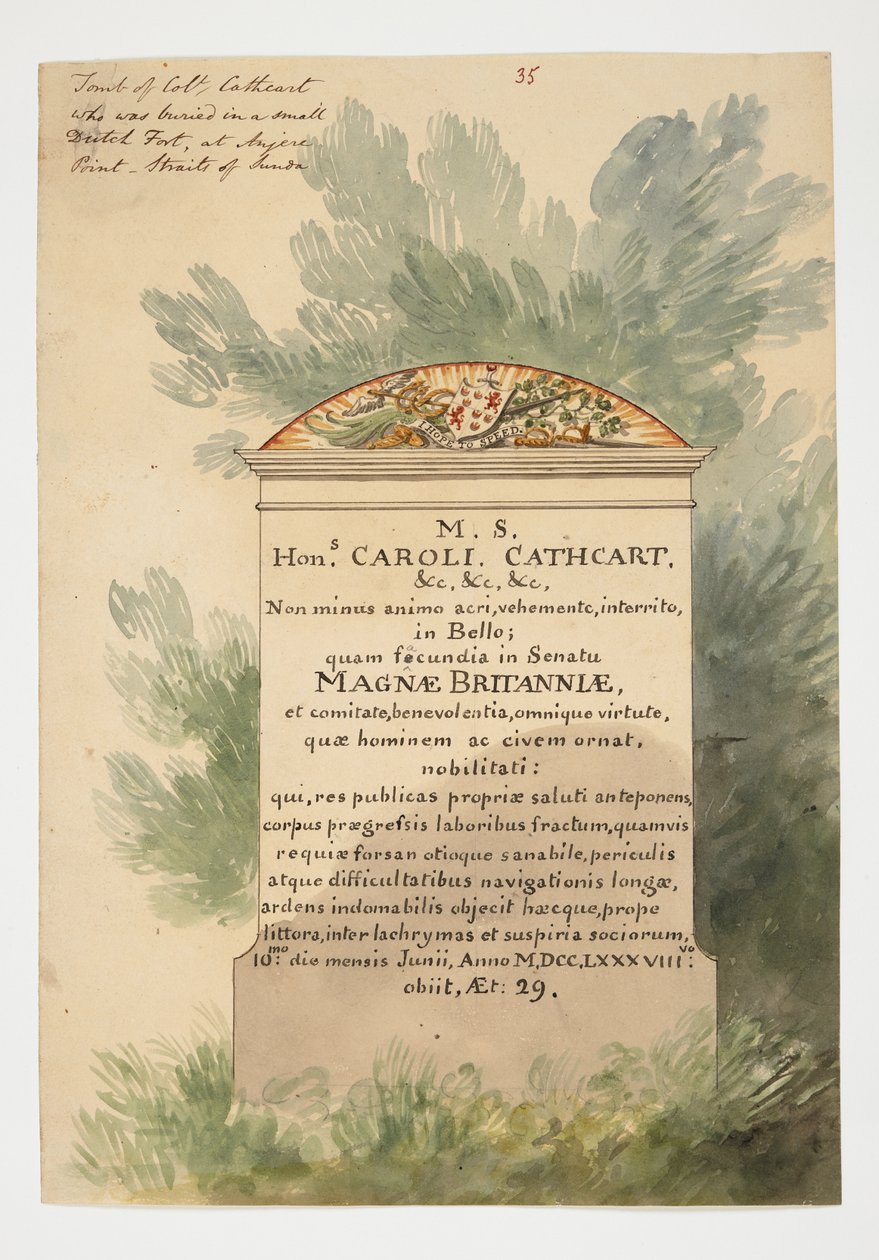 Tomb of Col.t Cathcart
who was buried in a small
Dutch Fort, at Anjere
Point - Straits of Sunda
35
I HOPE TO SPEED.
M. S.
Hon.s CAROLI. CATHCART,
&c, &c, &c,
Non minus animo acri, vehemente, interrito,
in Bello;
quam fæcundia in Senatu
MAGNÆ BRITANNIÆ,
et comitate, benevolentia, omnique virtute,
quæ hominem ac civem ornat,
nobilitati:
qui, res publicas propriæ saluti anteponens,
corpus prægreſsis laboribus fractum, quamvis
requiæ forsan otioque sanabile, periculis
atque difficultatibus navigationis longæ,
ardens indomabilis objecit hæcque, prope
littora, inter lachrymas et suspiria sociorum,
10:mo die mensis Junii, Anno M,DCC,LXXXVIII:vo
obiit, Æt: 29.